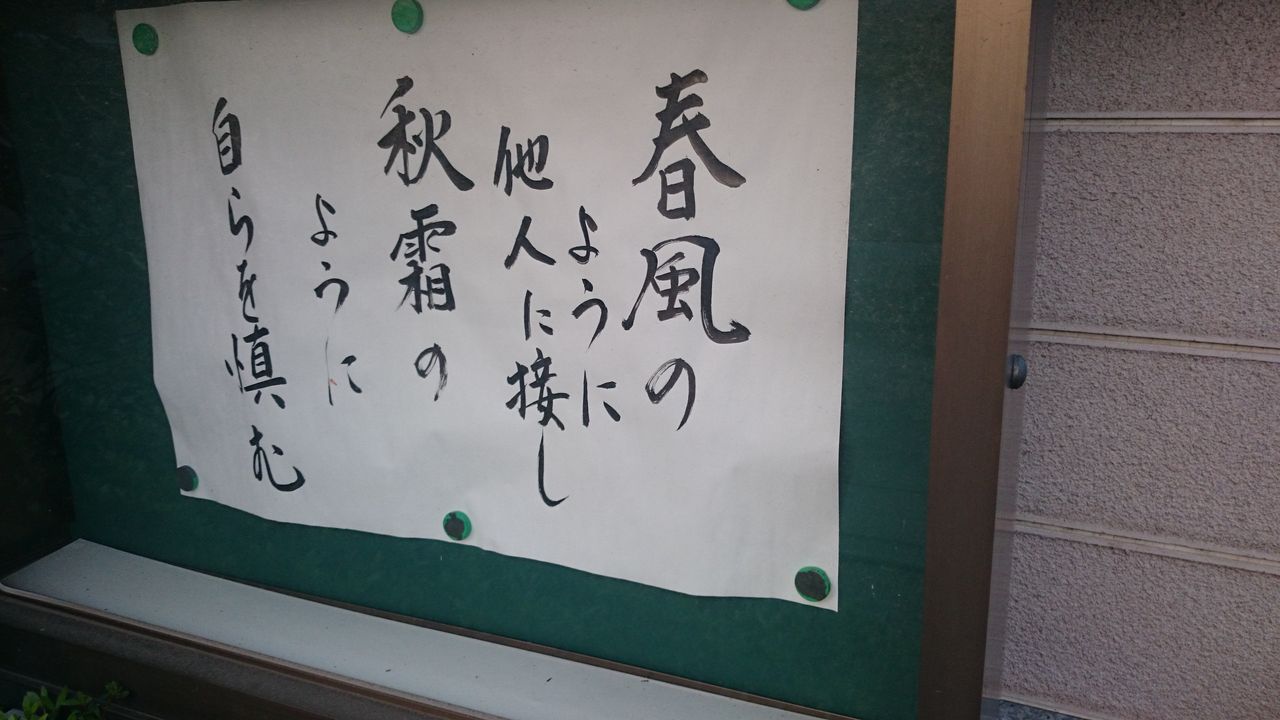 春風の
ように
他人に接し
秋霜の
ように
自らを慎む